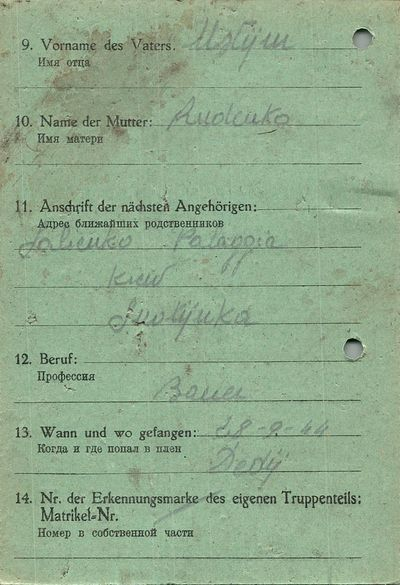 9. Vorname des Vaters.
Имя отца
10. Name der Mutter: Rudenko
Имя матери
11. Anschrift der nächsten Angehörigen:
Адрес ближайших родственников
Palaggia
Kiew
12. Beruf:
Профессия
Bauer
13. Wann und wo gefangen: 28-9-44
Когда и где попал в плен
14. Nr. der Erkennungsmarke des eigenen Truppenteils:
Matrikel-Nr.
Номер в собственной части